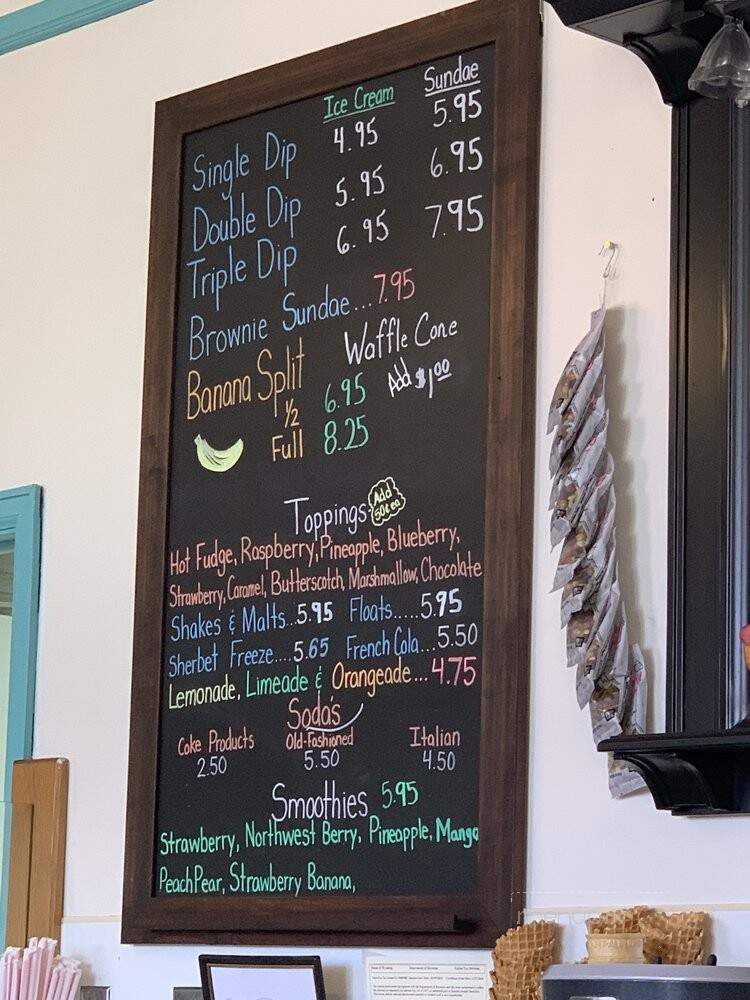 Ice Cream Sundae
Single Dip 4.95 5.95
Double Dip 5.95 6.95
Triple Dip 6.95 7.95
Brownie Sundae...7.95
Waffle Cone
Add $1.00
Banana Split
1/2 6.95
Full 8.25
Toppings Add 50¢ ea
Hot Fudge, Raspberry, Pineapple, Blueberry,
Strawberry, Caramel, Butterscotch, Marshmallow, Chocolate
Shakes & Malts...5.95 Floats.....5.95
Sherbet Freeze....5.65 French Cola...5.50
Lemonade, Limeade & Orangeade...4.75
Soda's
Coke Products Old-Fashioned Italian
2.50 5.50 4.50
Smoothies 5.95
Strawberry, Northwest Berry, Pineapple, Mango
Peach Pear, Strawberry Banana,